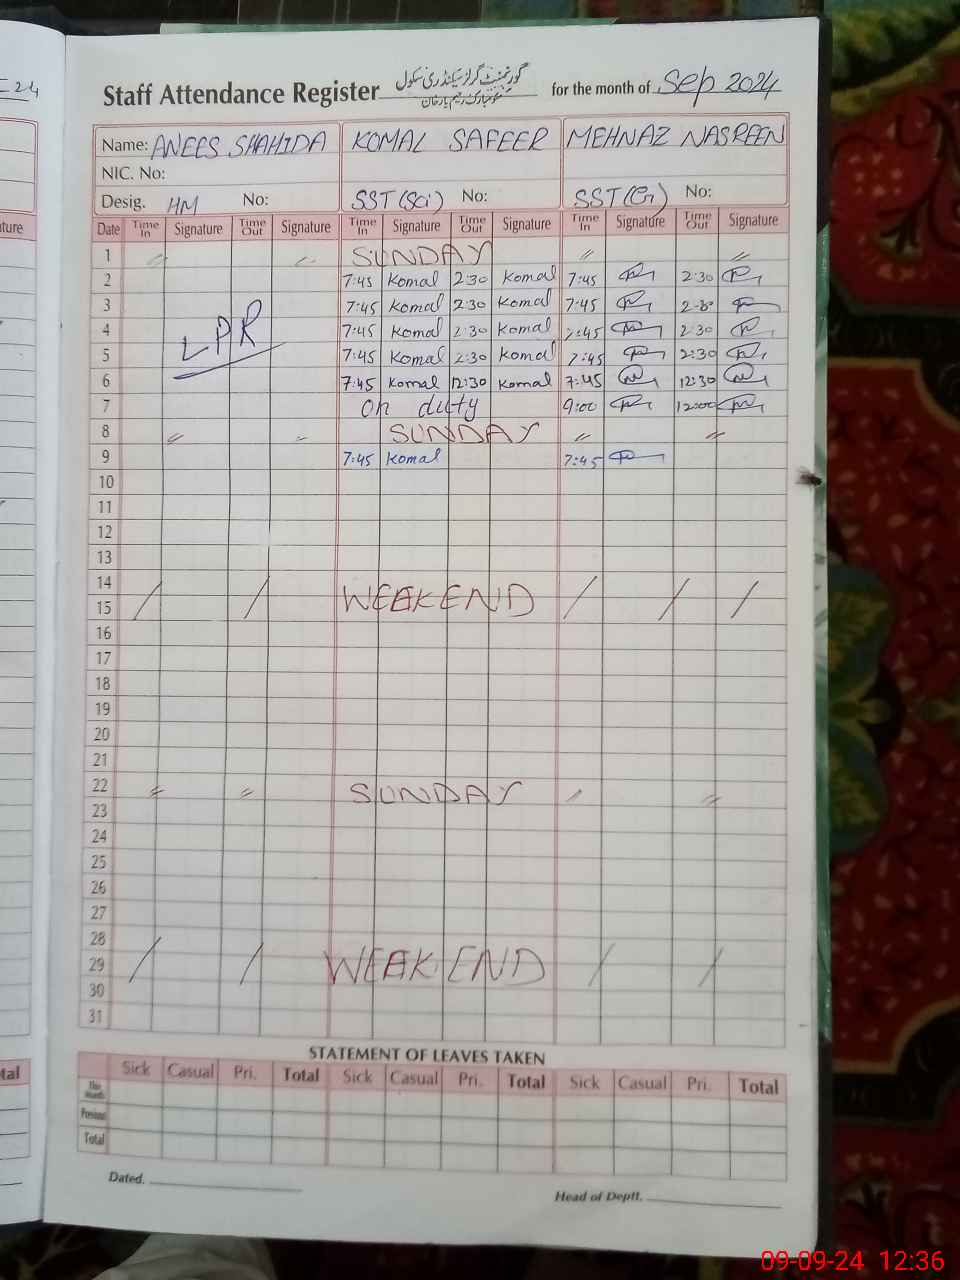 Staff Attendance Register گورنمنٹ گرلز سیکنڈری سکول for the month of Sep 2024
Name: ANEES SHAHIDA KOMAL SAFEER MEHNAZ NASREEN
NIC. No:
Desig. HM No: SST (Sci) No: SST (G) No:
Date Time In Signature Time Out Signature Time In Signature Time Out Signature Time In Signature Time Out Signature
1 〃 〃 SUNDAY 〃 〃
2 7:45 Komal 2:30 Komal 7:45 2:30
3 7:45 Komal 2:30 Komal 7:45
4 7:45 Komal 2:30 Komal 7:45 2:30
5 7:45 Komal 2:30 Komal 7:45 2:30
6 7:45 Komal 12:30 Komal 7:45 12:30
7 on duty 9:00 12:00
LPR
8 〃 〃 SUNDAY 〃 〃
9 7:45 Komal 7:45
10
11
12
13
14
15 / / WEEKEND / / /
16
17
18
19
20
21
22 〃 〃 SUNDAY 〃 〃
23
24
25
26
27
28
29 / / WEEKEND / /
30
31
STATEMENT OF LEAVES TAKEN
Sick Casual Pri. Total Sick Casual Pri. Total Sick Casual Pri. Total
This Month
Previous
Total
Dated.
Head of Deptt.
24
ature
tal
09-09-24 12:36